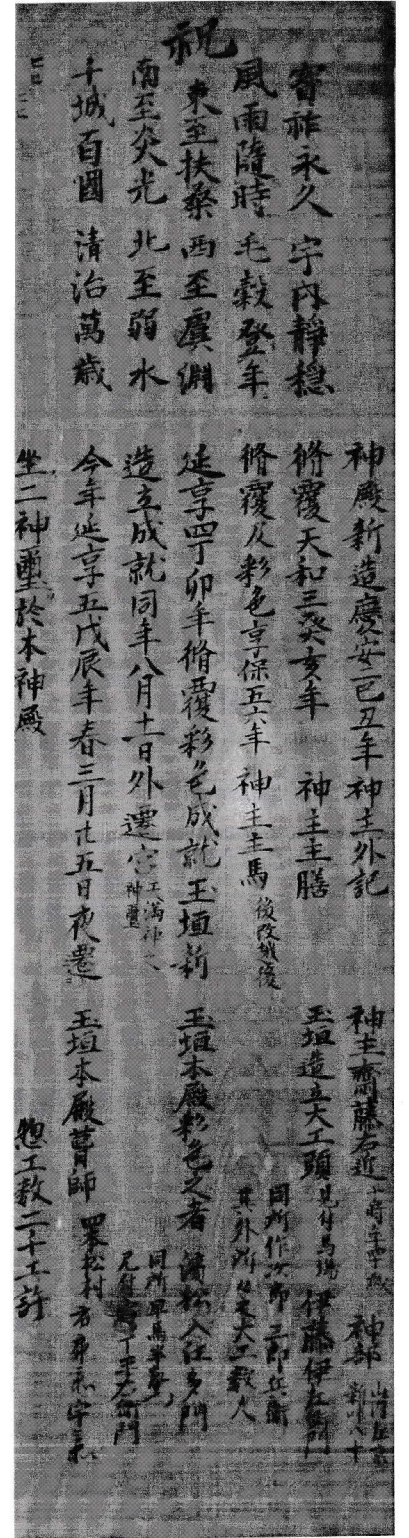 祝
寳祚永久 宇内静穏
風雨隨時 毛穀登年
東至扶桒 西至虞淵
南至炎光 北至弱水
千城百國 清治萬歳
神殿新造慶安二己丑年 神主外記
脩覆天和三癸亥年 神主主膳
脩覆及彩色享保五六年 神主主馬 後改
延享四丁卯年脩覆彩色成就玉垣新
造立成就同年八月十一日外遷宮
今年延享五戊辰年春三月廿五日夜遷
坐二神璽於本神殿
神主齋藤右近 神部
玉垣造立大工頭 見付馬場 伊藤伊左衛門
同所作次郎 三郎兵衛
其外所々之大工数人
玉垣本殿彩色之者 濱松入江多門
玉垣本殿葺師
惣工数二千工許